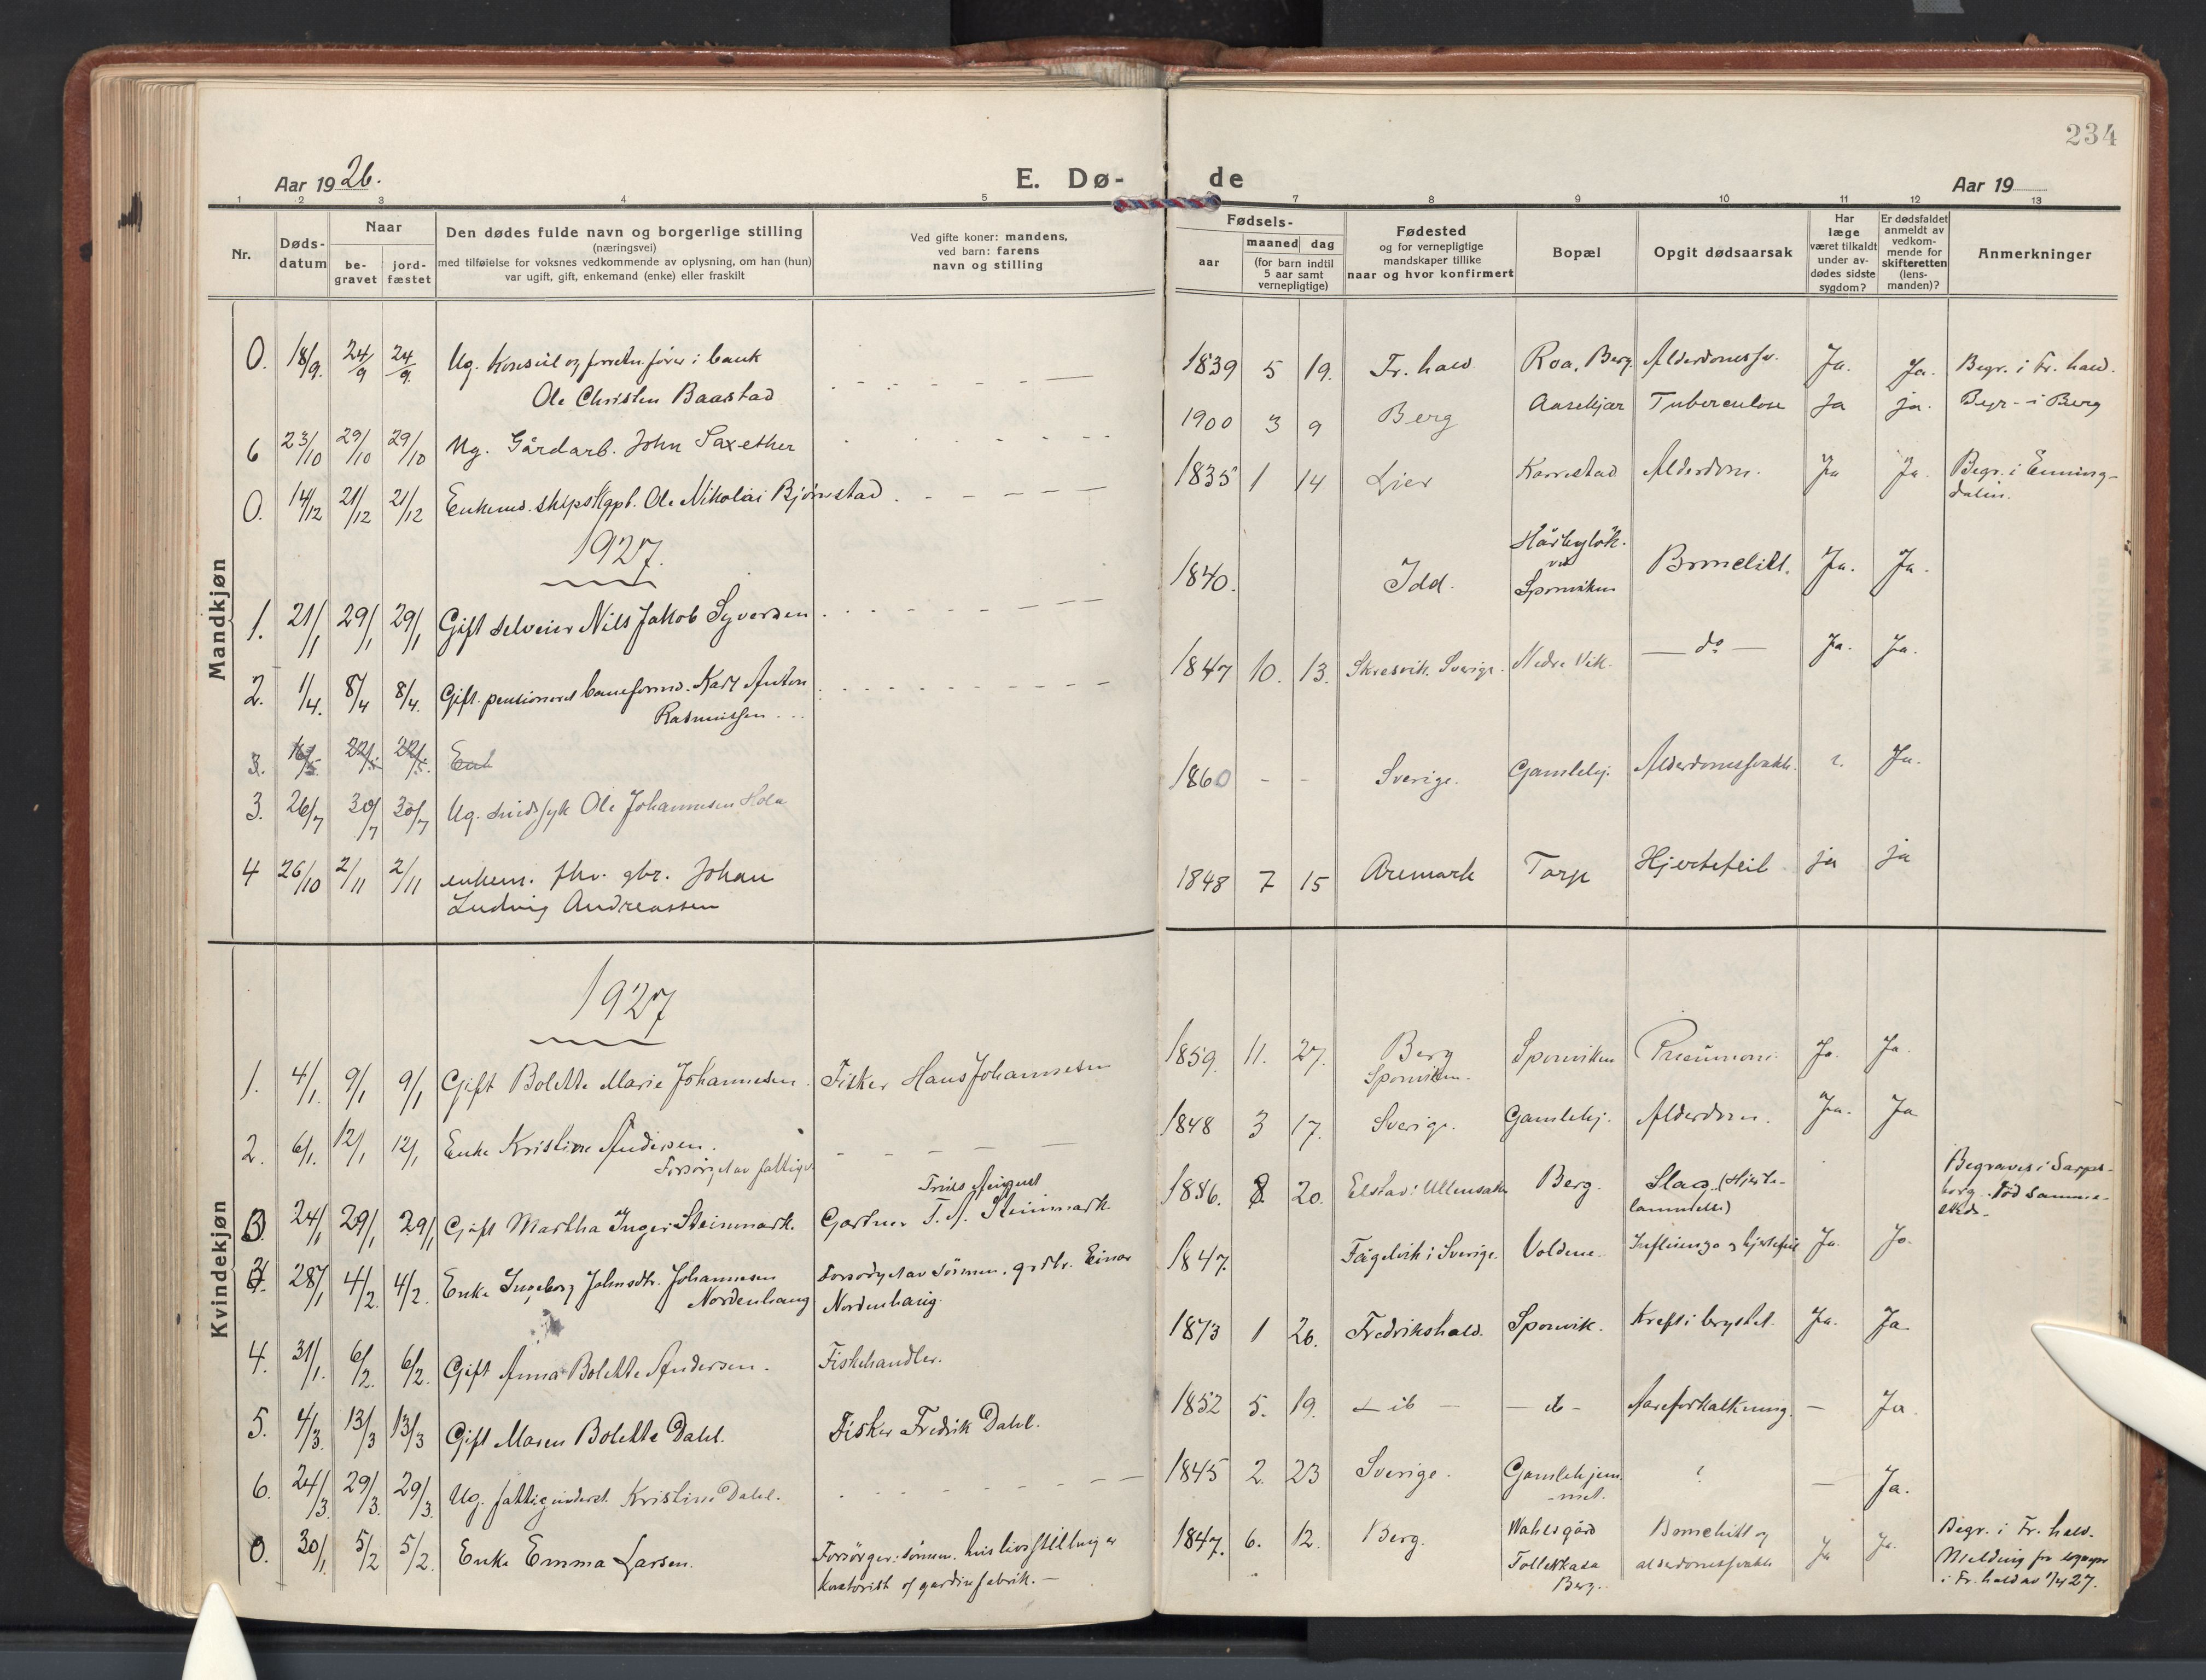 234
Aar 1926.
E. Dø-
de
Aar 19
1 2 3 4 5 7 8 9 10 11 12 13
Nr.
Døds-
datum
Naar
be-
gravet
jord-
fæstet
Den dødes fulde navn og borgerlige stilling
(næringsvei)
med tilføielse for voksnes vedkommende av oplysning, om han (hun)
var ugift, gift, enkemand (enke) eller fraskilt
Ved gifte koner: mandens,
ved barn: farens
navn og stilling
Fødsels-
aar
maaned dag
(for barn indtil
5 aar samt
vernepligtige)
Fødested
og for vernepligtige
mandskaper tillike
naar og hvor konfirmert
Bopæl
Opgit dødsaarsak
Har
læge
været tilkaldt
under av-
dødes sidste
sygdom?
Er dødsfaldet
anmeldt av
vedkom-
mende for
skifteretten
(lens-
manden)?
Anmerkninger
Mandkjøn
0. 18/9. 24/9 24/9. Ug. Konsul og forretn.fører i bank
Ole Christen Baastad
1839 5 19. Fr.hald Roa, Berg. Alderdomssv. Ja. Ja. Begr. i Fr.hald.
6 23/10 29/10 29/10 Ug. Gårdarb. John Saxether
1900 3 9 Berg Aasekjær Tuberculose Ja ja. Begr. i Berg
0. 14/12 21/12 21/12 Enkemd. skipskapt. Ole Nikolai Bjørnstad
1835 1 14 Lier Korrestad Alderdom. Ja Ja. Begr. i Enning-
dalen.
1927.
1. 21/1 29/1 29/1 Gift selveier Nils Jakob Syversen
1840. Idd. ved
Sponviken Ja. Ja.
2. 1/4. 8/4 8/4. Gift. pensioneret baneformd. Karl Anton
Rasmussen
1847 10. 13. Skresvik. Sverige. Nedre Vik. — do — Ja. Ja.
3. 22/5 22/5. Enk
3. 26/7 30/7 30/7 Ug. sindssyk Ole Johannesen Hola
1860 - - Sverige. Gamlehj. Alderdomssvakh. ?. Ja.
4 26/10 2/11 2/11 enkem. fhv. gbr. Johan
Ludvig Andreassen
1848 7 15 Aremark Torp Hjertefeil ja ja
Kvindekjøn
1927
1. 4/1. 9/1 9/1 Gift Bolette Marie Johannesen. Fisker Hans Johannesen
1859. 11. 27. Berg
Sponviken. Sponviken Pneumoni Ja. Ja.
2. 6/1. 12/1 12/1 Enke Kristine Andersen.
Forsørget av fattigv.
1848 3 17. Sverige. Gamlehj. Alderdom. Ja. Ja
3. 24/1 29/1 29/1 Gift Martha Inger Steinmark. August
Gartner F. A. Steinmark
1856. 8. 20. Elstad i Ullensaker Berg. Slag. (Hjerte-
lammelse) Begraves i Sarps-
borg. Død samme-
steds.
28/1 4/2 4/2. Enke Ingeborg Johnsdtr. Johannesen
Nordenhaug Forsørget av sønnen. grdbr. Einar
Nordenhaug.
1847. Fågelvik i Sverige. Voldene. Influenza og hjertefeil Ja. Ja.
4. 31/1. 6/2. 6/2. Gift Anna Bolette Andersen. Fiskehandler.
1873 1 26. Fredrikshald. Sponvik. Kreft i brystet. Ja. Ja
5. 4/3. 13/3 13/3 Gift Maren Bolette Dahl. Fisker Fredrik Dahl.
1852 5. 19. — do - Aareforkalkning. — Ja.
6. 24/3. 29/3. 29/3. Ug. fattigunderst. Kristine Dahl.
1845 2. 23 Sverige. Gamlehjem-
met. ? — Ja.
0. 30/1. 5/2 5/2. Enke Emma Larsen. Forsørger: sønnen. hvis livsstilling er
kontorist v/ gardinfabrik.
1847. 6. 12. Berg. Wahlsgård
Tollerkasa
Berg. Bronchitt og
alderdomssvakh. Ja Ja. Begr. i Fr.hald.
Melding fra sognepr.
i Fr.hald av 1/4 27.